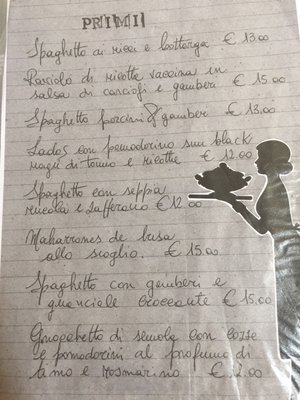 PRIMI
Spaghetto ai ricci e bottarga € 13.00
Raviolo di ricotta vaccina in
salsa di carciofi e gamberi € 15.00
Spaghetto porcini & gamberi € 13.00
con pomodorino sun black
ragù di tonno e ricotta € 12.00
Spaghetto con seppia
rucola e zafferano € 12.00
Maharrones de busa
allo scoglio. € 15.00
Spaghetto con gamberi e
guanciale croccante € 15.00
Gnocchetto di semola con cozze
e pomodorini al profumo di
timo e rosmarino €